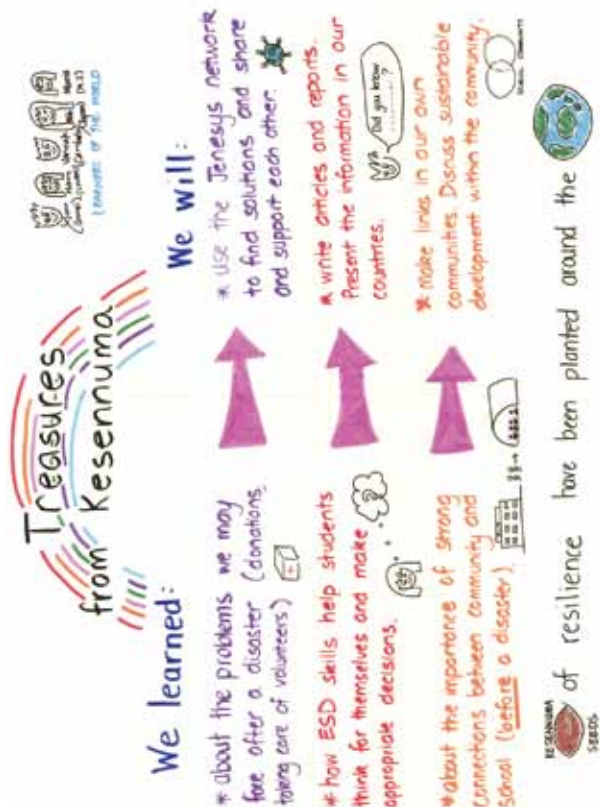 Treasures
from Kesennuma
LEARNERS OF THE WORLD
We learned:
* about the problems we may
face after a disaster (donations,
taking care of volunteers)
* how ESD skills help students
think for themselves and make
appropriate decisions.
* about the importance of strong
connections between community and
school (before a disaster).
We will:
* Use the Jenesys network
to find solutions and share
and support each other.
* write articles and reports.
Present the information in our
countries.
Did you know
?
* make links in our own
communites. Discuss sustainable
development within the community.
SCHOOL COMMUNITY
KESENNUMA
SEEDS
of resilience have been planted around the